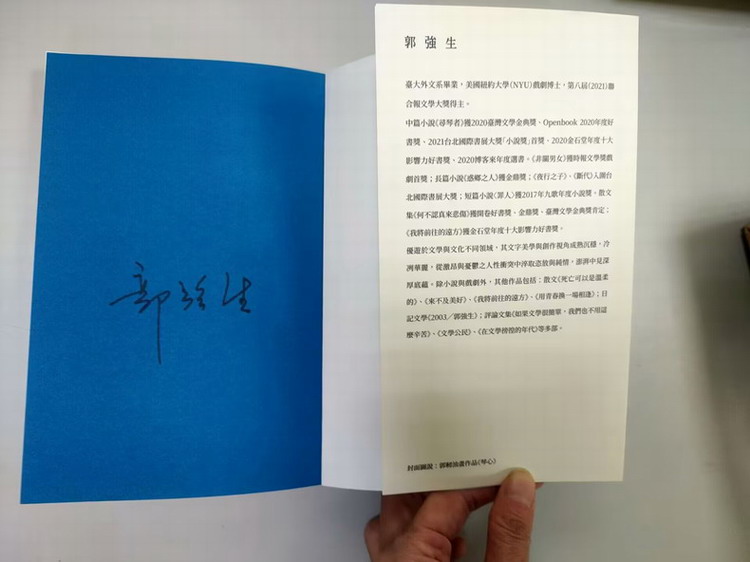 郭強生
郭強生
臺大外文系畢業，美國紐約大學(NYU)戲劇博士，第八屆(2021)聯
合報文學大獎得主。
中篇小說《尋琴者》獲2020臺灣文學金典獎、Openbook 2020年度好
書獎、2021台北國際書展大獎「小說獎」首獎、2020金石堂年度十大
影響力好書獎、2020博客來年度選書。《非關男女》獲時報文學獎戲
劇首獎；長篇小說《惑鄉之人》獲金鼎獎；《夜行之子》、《斷代》入圍台
北國際書展大獎；短篇小說〈罪人〉獲2017年九歌年度小說獎。散文
集《何不認真來悲傷》獲開卷好書獎、金鼎獎、臺灣文學金典獎肯定；
《我將前往的遠方》獲金石堂年度十大影響力好書獎。
優遊於文學與文化不同領域，其文字美學與創作視角成熟沉穩，冷
冽華麗，從激昂與憂鬱之人性衝突中淬取恣放與純情，澎湃中見深
厚底蘊。除小說與戲劇外，其他作品包括：散文《死亡可以是溫柔
的》、《來不及美好》、《我將前往的遠方》、《用青春換一場相逢》；日
記文學《2003／郭強生》；評論文集《如果文學很簡單，我們也不用這
麼辛苦》、《文學公民》、《在文學徬徨的年代》等多部。
封面圖說：郭軔油畫作品《琴心》